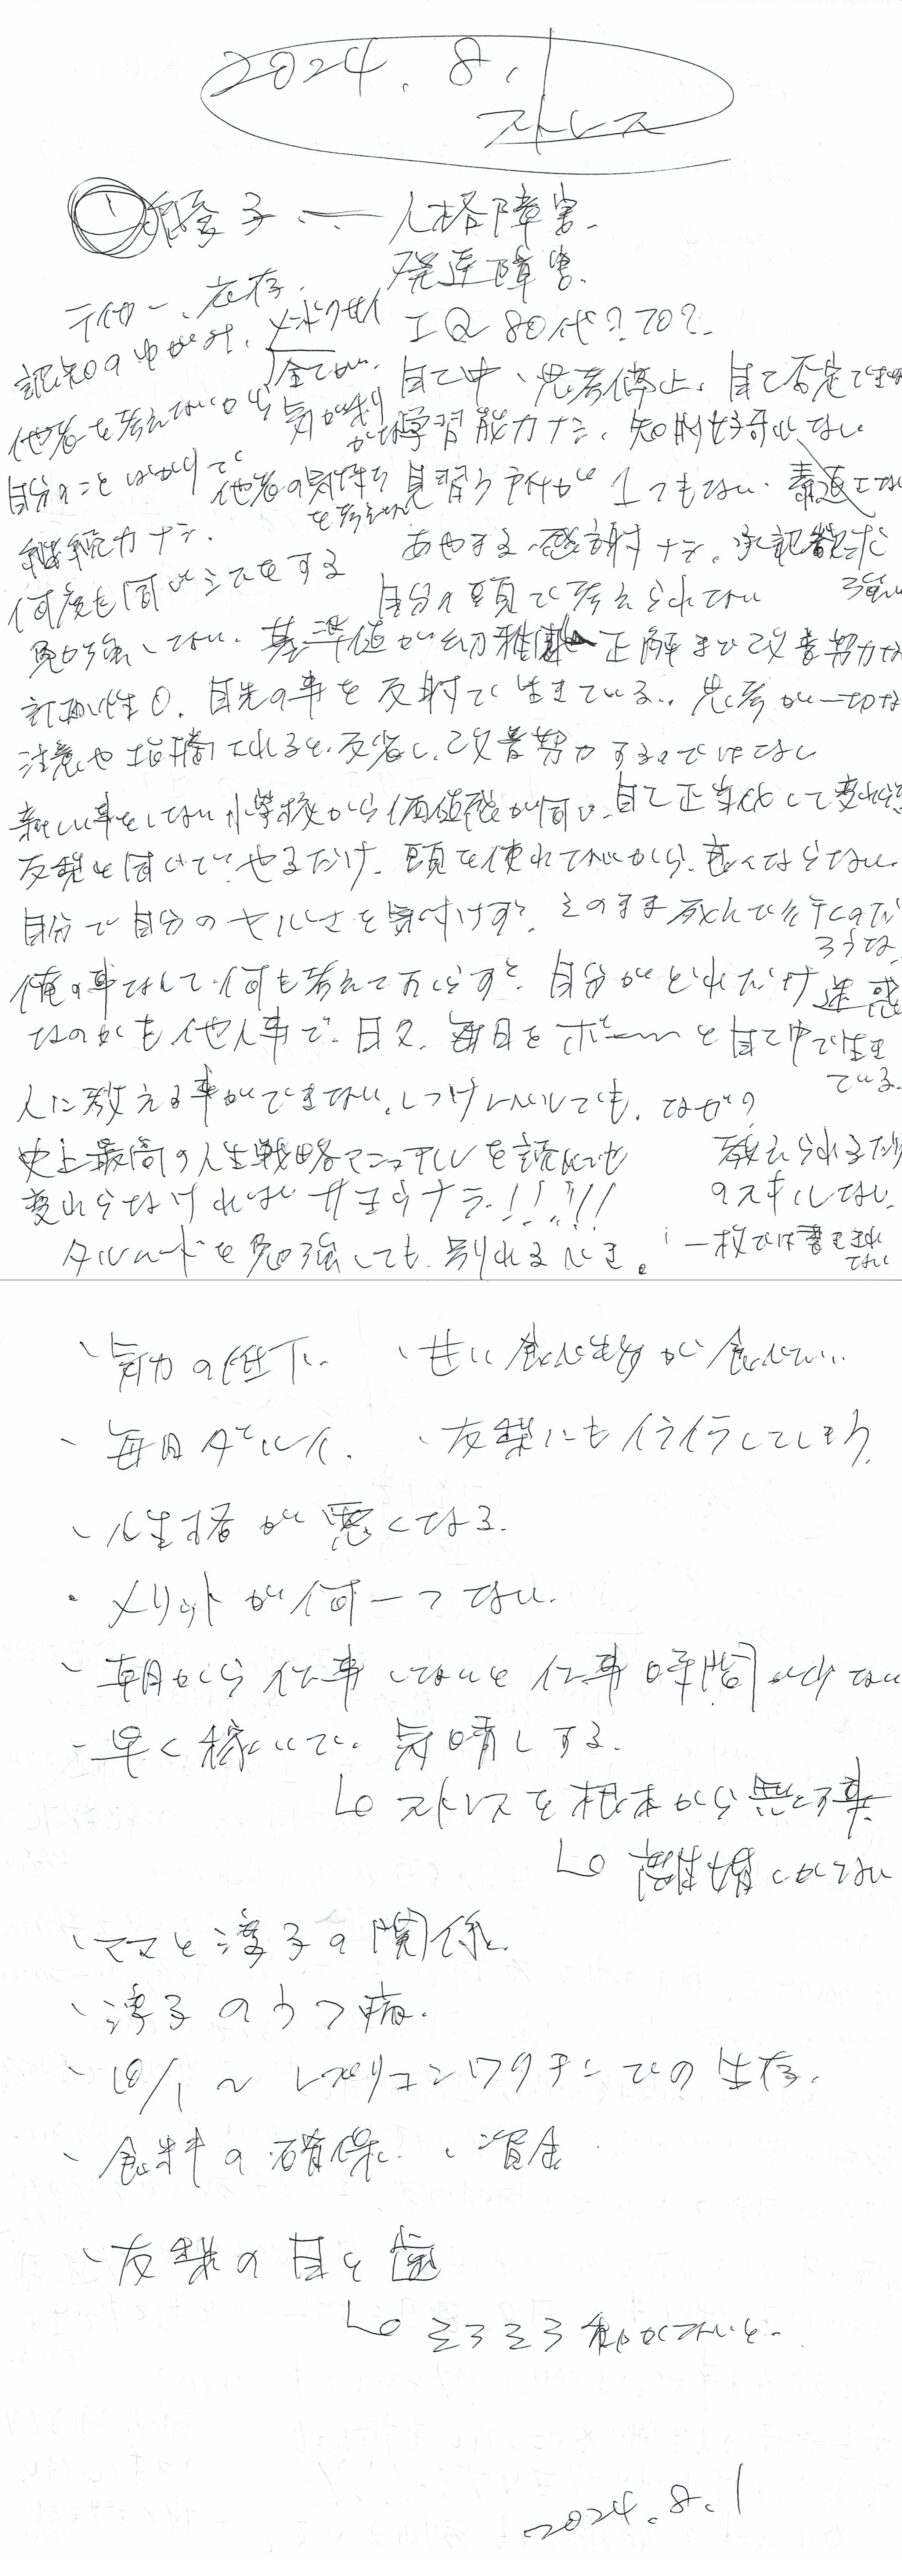 2024.8.1
ストレス
① 子 ー 人格障害.
発達障害.
テイカー、依存.
IQ 80代?70?.
認知のゆがみ、メンドクサイ
全てが、自己中、思考停止、自己否定できない
他者を考えないから気が利かない 学習能力ナシ、知的好奇心ない
自分のことばかりで他者の気持ちを考えない 見習う所が1つもない
継続力ナシ. あやまる、感謝ナシ、承認欲求強い
何度も同じミスをする 自分の頭で考えられない
勉強しない、基準値が幼稚園 正解まで改善努力な
計画性0.目先の事を反射で生きている、思考が一切な
注意や指摘されると、反省し、改善努力するのではない
新しい事をしない 小学校から価値感が同じ、自己正当化して変わらな
友梨を同じでやるだけ、頭を使れてないから、良くならない
自分で自分のセルフさを気付けず、そのまま死んで行くのだろうな
俺の事なんて、何も考えておらず、自分がどれだけ迷惑
なのかも他人事で、日々、毎日をボーーっと自己中で生きている.
人に教える事ができない、しつけレベルでも、なぜ? 教えられるだけのスキルない.
史上最高の人生戦略マニュアルを読んでも
変わらなければサヨウナラ!!!!!
タルムードを勉強しても、別れるべき。 一枚では書ききれない
、気力の低下、 、甘い食べ物が食べたい..
、毎日ダルイ. 、友梨にもイライラしてしまう.
、人生が悪くなる.
・メリットが何一つない.
、朝から仕事しないと仕事時間が少ない
、早く稼いで、気晴しする.
└→ストレスを根本から無くす事
└→離婚しかない
、ママと淳子の関係
、淳子のうつ病.
、10/1〜レプリコンワクチンでの生存.
、食料の確保. 、資金
、友梨の目と歯
└→そろそろ動かないと.
2024.8.1